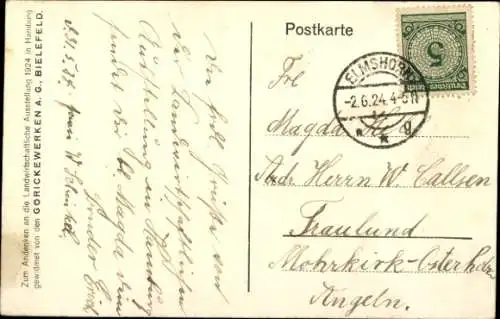 Zum Andenken an die Landwirtschaftliche Ausstellung 1924 in Hamburg
gewidmet von den GÖRICKEWERKEN A. G., BIELEFELD.
Postkarte
5
Deutsches Reich
ELMSHORN
-2.6.24. 4-5N
* * g
Frl
Magda
Adr. Herrn W. Callsen
Fraulund
Mohrkirk-Osterholz
Angeln.
Die
Grüße von
der Landwirtschaftlichen
Ausstellung in Hamburg
sendet Dir l. Magda Dein
Bruder Erich